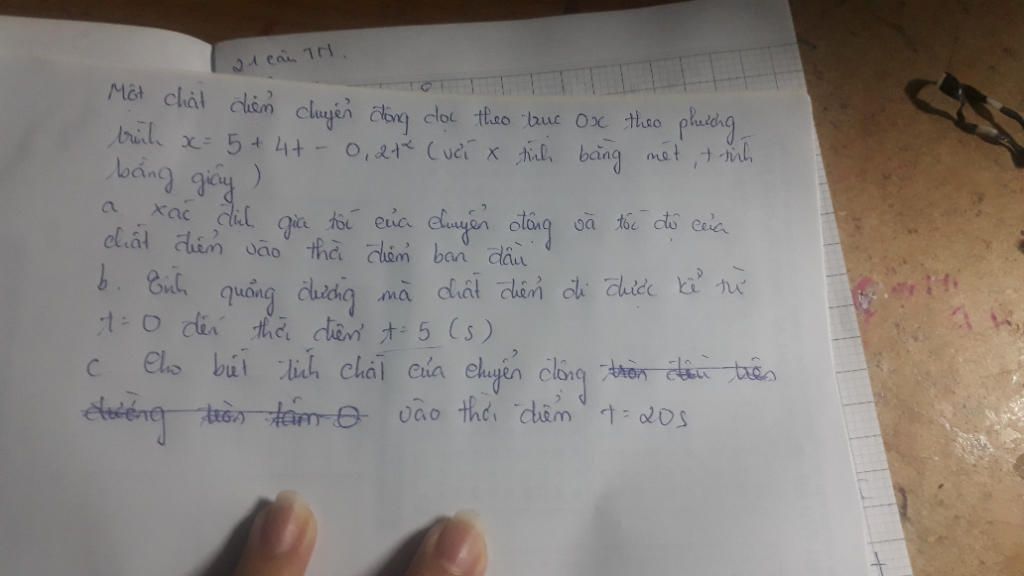 21 câu TN.
Một chất điểm chuyển động dọc theo trục Ox theo phương
trình x = 5 + 4t - 0,2t² (với x tính bằng mét, t tính
bằng giây)
a xác định gia tốc của chuyển động và tốc độ của
chất điểm vào thời điểm ban đầu
b. Tính quãng đường mà chất điểm đi được kể từ
t = 0 đến thời điểm t = 5 (s)
c Cho biết tính chất của chuyển động tròn đều trên
đường tròn tâm O vào thời điểm t = 20s